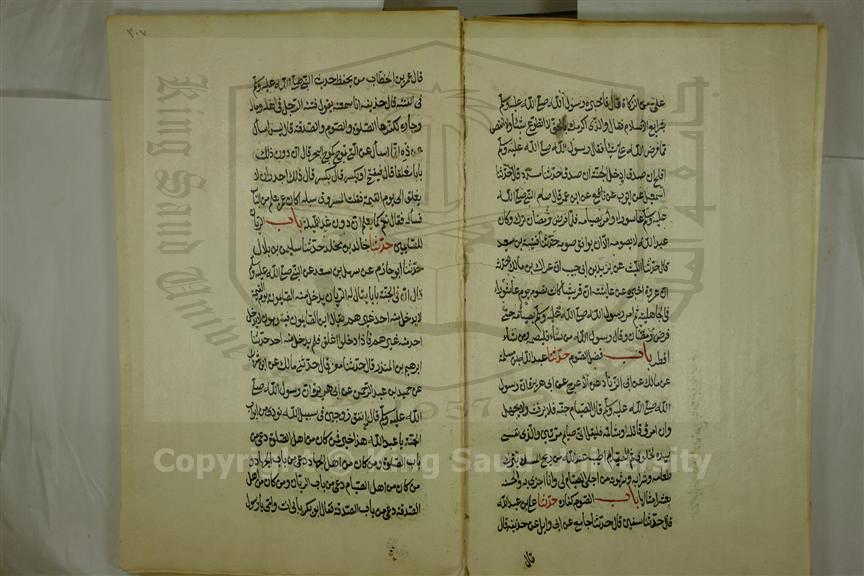 علي من الزكاة قال فاخبره رسول الله صلى الله عليه وسلم
بشرايع الاسلام فقال والذي اكرمك بالحق لا اتطوع شيئا ولا انقص
مما فرض الله علي شيئا فقال رسول الله صلى الله عليه وسلم
افلح ان صدق او دخل الجنة ان صدق حدثنا مسدد قال حدثنا
اسمعيل عن ايوب عن نافع عن ابن عمر قال صام النبي صلى الله
عليه وسلم عاشوراء وامر بصيامه فلما فرض رمضان ترك وكان
عبد الله لا يصومه الا ان يوافق صومه حدثنا قتيبة بن سعيد
قال حدثنا الليث عن يزيد بن ابي حبيب ان عراك بن مالك حدثه
ان عروة اخبره عن عايشة ان قريشا كانت تصوم يوم عاشوراء
في الجاهلية ثم امر رسول الله صلى الله عليه وسلم بصيامه حتى
فرض رمضان وقال رسول الله من شاء فليصمه ومن شاء
افطر باب فضل الصوم حدثنا عبد الله بن مسلمة
عن مالك عن ابي الزناد عن الاعرج عن ابي هريرة ان رسول
الله صلى الله عليه وسلم قال الصيام جنة فلا يرفث ولا يجهل
وان امرؤ قاتله او شاتمه فليقل اني صايم مرتين والذي نفسي
بيده لخلوف فم الصايم اطيب عند الله من ريح المسك يترك
طعامه وشرابه وشهوته من اجلي الصيام لي وانا اجزي به والحسنة
بعشر امثالها باب الصوم كفارة حدثنا علي بن عبد الله
قال حدثنا سفين قال حدثنا جامع عن ابي وايل عن حذيفة قال
قال
٣٠٧
قال عمر بن الخطاب من يحفظ حديث النبي صلى الله عليه وسلم
في الفتنة قال حذيفة انا سمعته يقول فتنة الرجل في اهله وماله
وجاره تكفرها الصلوة والصوم والصدقة قال ليس اسال
عن ذه انما اسال عن التي تموج كموج البحر قال ان دون ذلك
بابا مغلقا قال فيفتح او يكسر قال يكسر قال ذلك اجدر ان لا
يغلق الى يوم القيمة فقلنا لمسروق سله اكان عمر يعلم من الباب
فساله فقال نعم كما يعلم ان دون غد الليلة باب الريان
للصايمين حدثنا خالد بن مخلد حدثنا سليمن بن بلال
حدثنا ابو حازم عن سهل بن سعد عن النبي صلى الله عليه وسلم
قال ان في الجنة بابا يقال له الريان يدخل منه الصايمون يوم القيمة
لا يدخل منه احد غيرهم يقال اين الصايمون فيقومون لا يدخل
احد منه غيرهم فاذا دخلوا اغلق فلم يدخل منه احد حدثنا
ابرهيم بن المنذر قال حدثنا معن قال حدثني مالك عن ابن شهاب
عن حميد بن عبد الرحمن عن ابي هريرة ان رسول الله صلى
الله عليه وسلم قال من انفق زوجين في سبيل الله نودي من ابواب
الجنة يا عبد الله هذا خير فمن كان من اهل الصلوة دعي من
باب الصلوة ومن كان من اهل الجهاد دعي من باب الجهاد ومن
كان من اهل الصيام دعي من باب الريان ومن كان من اهل
الصدقة دعي من باب الصدقة فقال ابو بكر بابي انت وامي يا رسول
King Saud University
جامعة الملك سعود
1957
Copyright © King Saud University